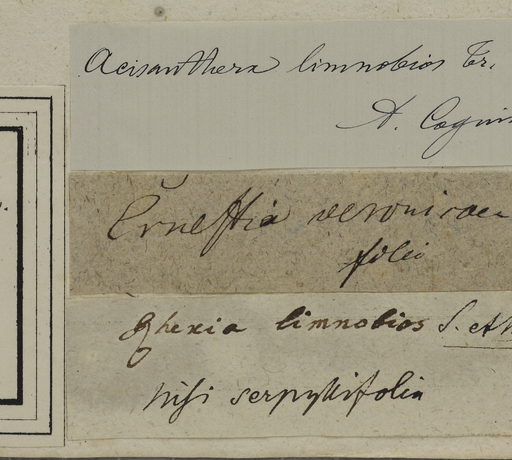 Acisanthera limnobios Tr.
A. Cogni
Ernestia veronicae
folia
Rhexia limnobios S. et M
nisi serpyllifolia